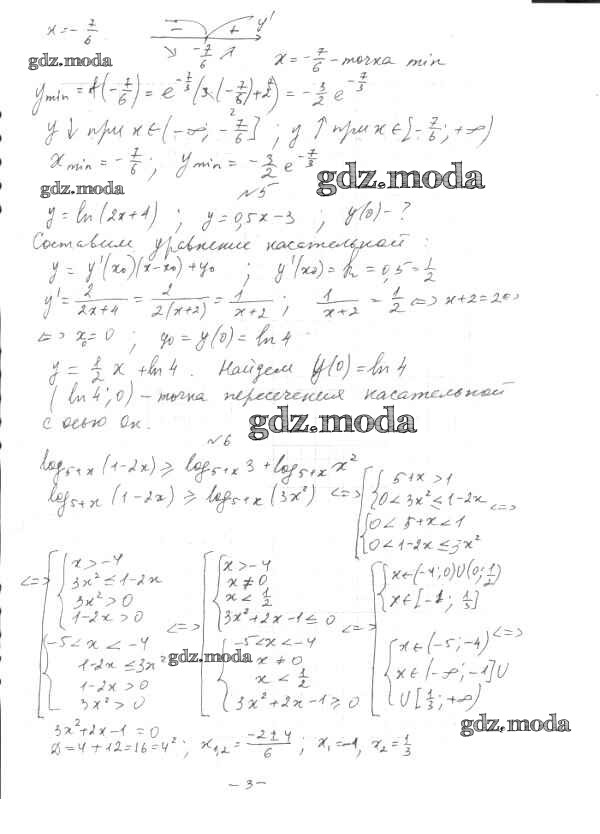 x = -7/6 − -7/6 + y'
gdz.moda
x = -7/6 - точка min
y min = f(-7/6) = e^(-7/3) (3·(-7/6)+2) = -3/2 e^(-7/3)
y ↓ при x ∈ (-∞; -7/6] ; y ↑ при x ∈ [-7/6; +∞)
x min = -7/6 ; y min = -3/2 e^(-7/3)
gdz.moda
gdz.moda
№5
y = ln(2x+4) ; y = 0,5x-3 ; y(0) - ?
Составим уравнение касательной:
y = y'(x₀)(x-x₀)+y₀ ; y'(x₀) = k = 0,5 = 1/2
y' = 2/(2x+4) = 2/(2(x+2)) = 1/(x+2) ; 1/(x+2) = 1/2 <=> x+2=2 <=>
<=> x₀=0 ; y₀ = y(0) = ln 4
y = 1/2 x + ln 4. Найдем y(0) = ln 4
(ln 4; 0) - точка пересечения касательной
с осью Ox.
gdz.moda
№6
log₅₊ₓ(1-2x) ≥ log₅₊ₓ3 + log₅₊ₓx²
log₅₊ₓ(1-2x) ≥ log₅₊ₓ(3x²) <=>
5+x>1
0<3x²≤1-2x <=>
0<5+x<1
0<1-2x≤3x²
<=> x>-4
3x²≤1-2x
3x²>0
1-2x>0
-5<x<-4
1-2x≤3x²
1-2x>0
3x²>0
<=> x>-4
x≠0
x<1/2
3x²+2x-1≤0
-5<x<-4
x≠0
x<1/2
3x²+2x-1≥0
<=> x∈(-4;0)U(0;1/2)
x∈[-1; 1/3]
x∈(-5;-4) <=>
x∈(-∞;-1]U
U[1/3;+∞)
gdz.moda
gdz.moda
3x²+2x-1=0
D=4+12=16=4² ; x₁,₂ = (-2±4)/6 ; x₁=-1, x₂=1/3
-3-